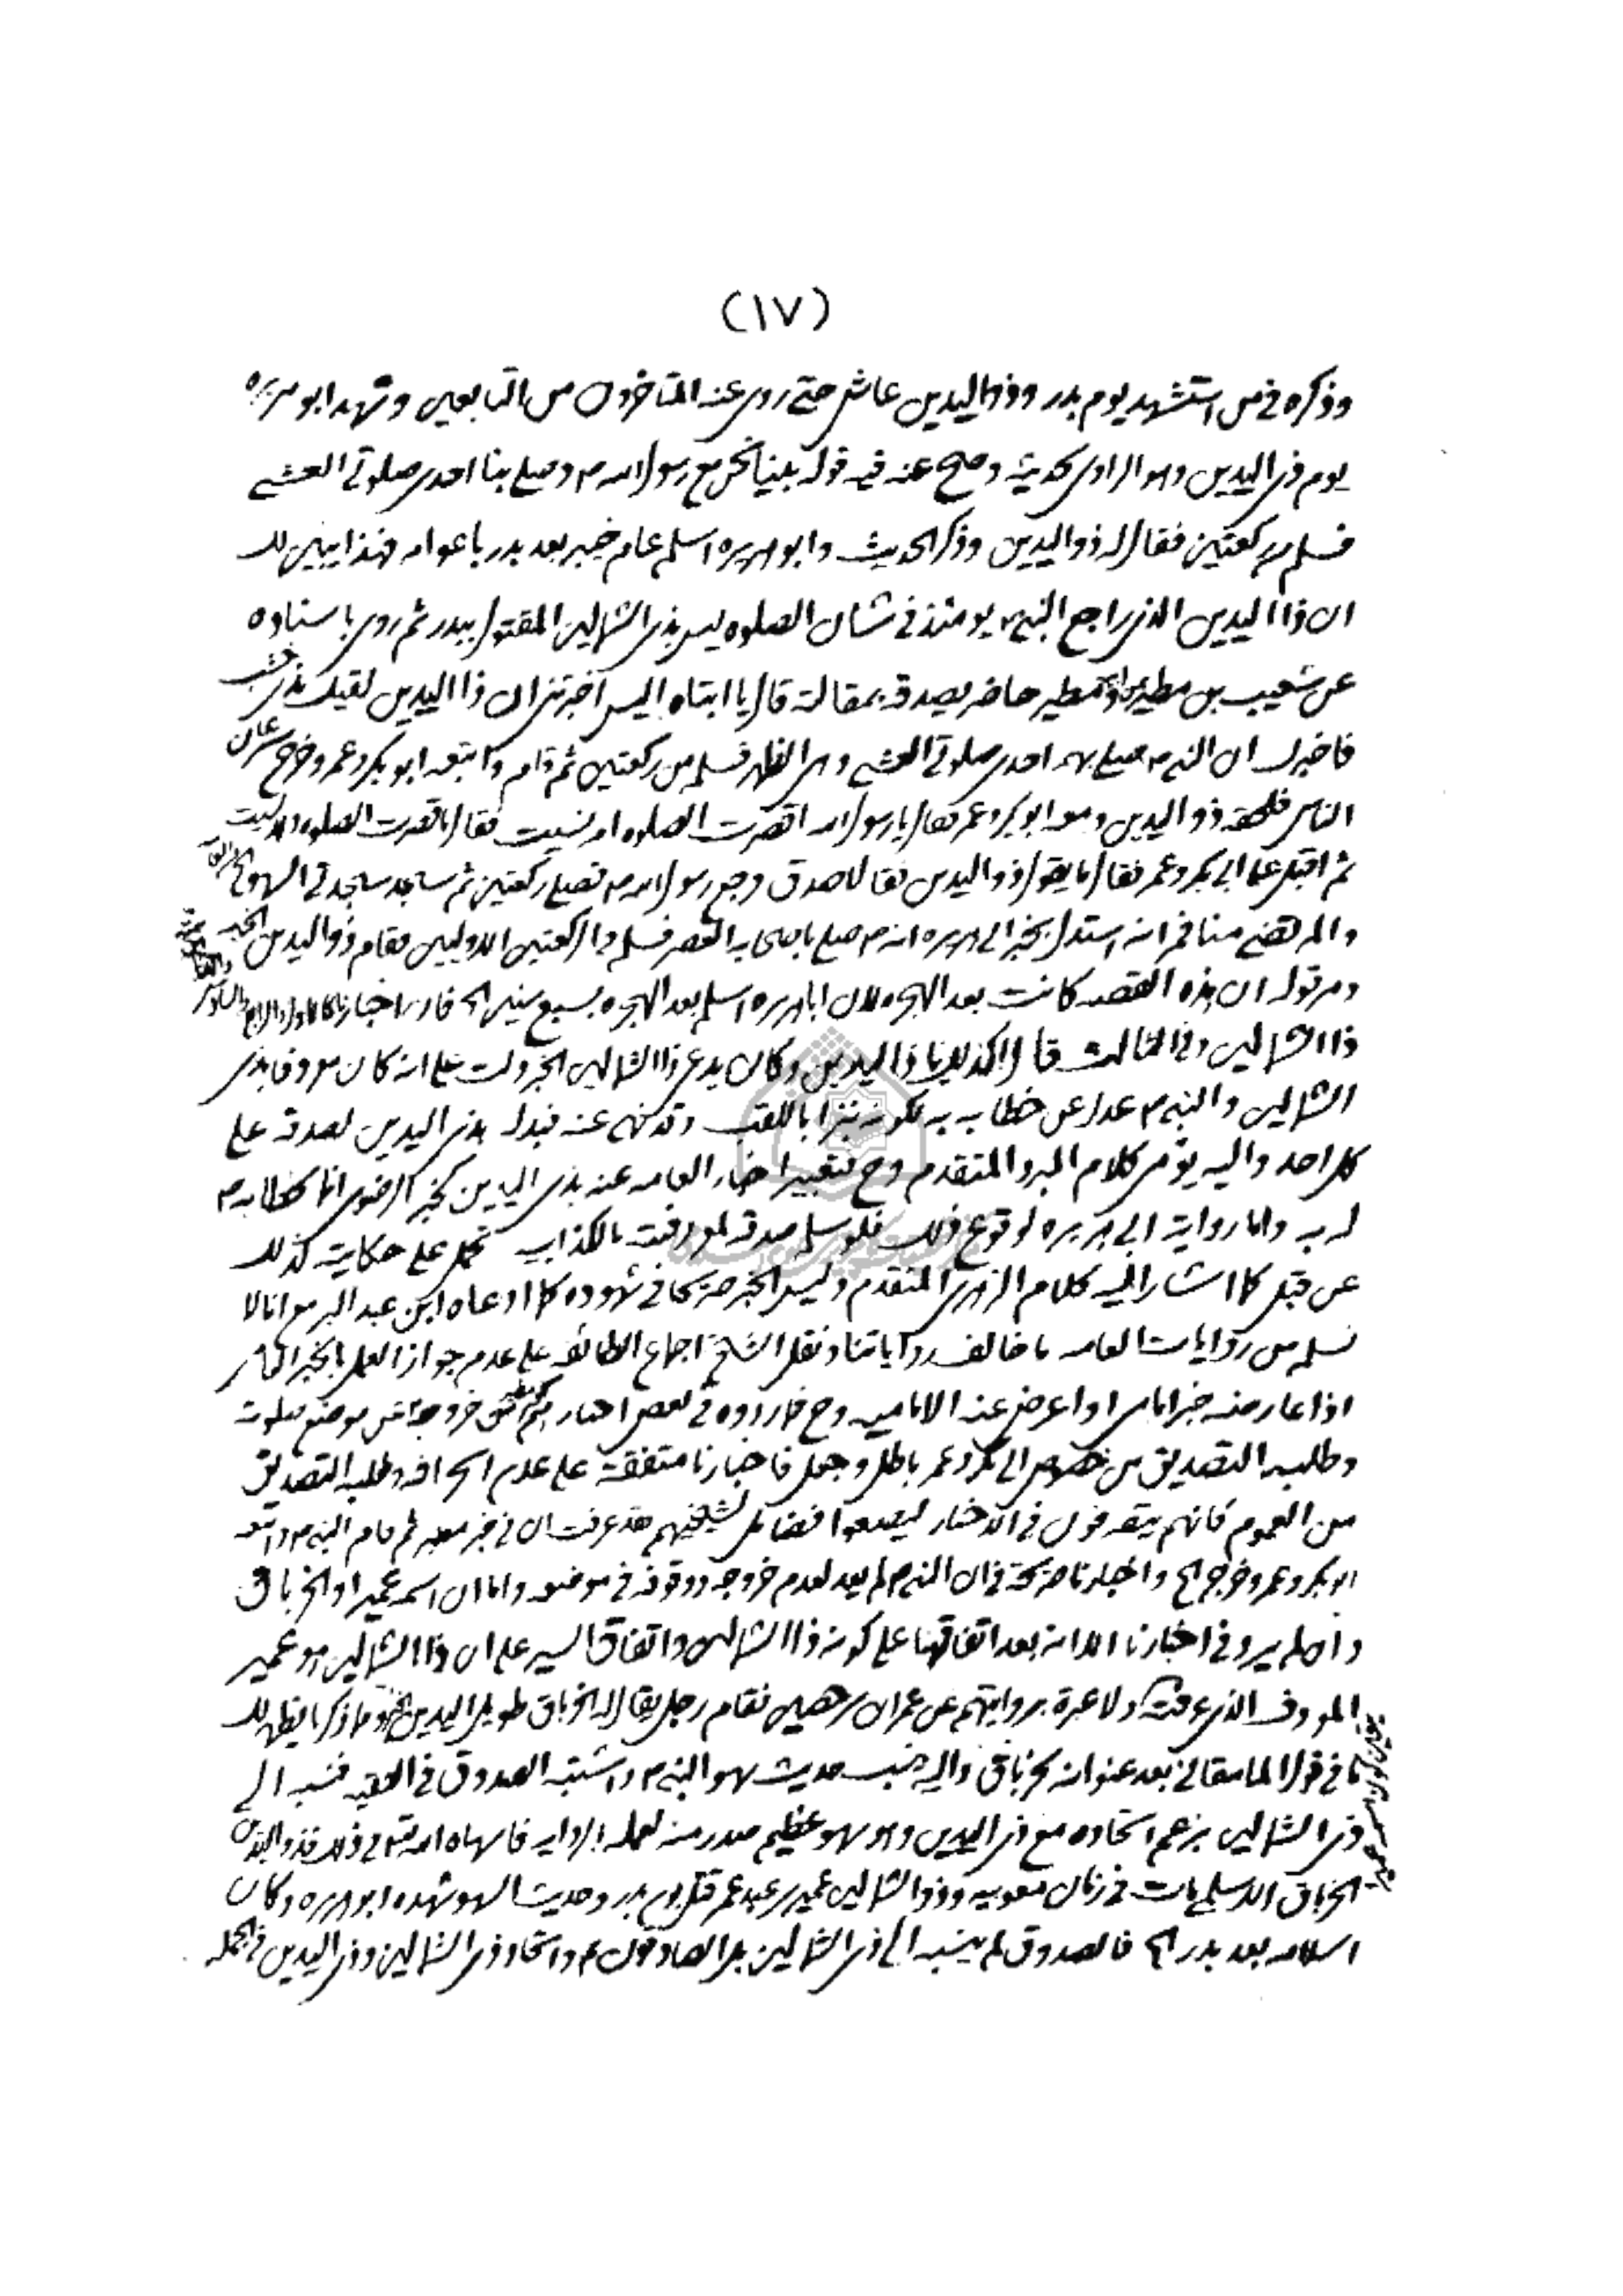 (١٧)
وذكره فى من استشهد يوم بدر وذو اليدين عاش حتى روى عنه المتاخرون من التابعين وشهد ابو هريره
يوم ذى اليدين وهو الراوى لحديثه وصح عنه فيه قوله بينا نحن مع رسول الله ص وصلى بنا احدى صلوتى العشى
فسلم من ركعتين فقال له ذو اليدين وذكر الحديث وابو هريره اسلم عام خيبر بعد بدر باعوام فهذا يبين لك
ان ذا اليدين الذى راجع النبى ص يومئذ فى شان الصلوه ليس بذى الشمالين المقتول ببدر ثم روى باسناده
عن شعيب بن مطير ومطير حاضر يصدقه بمقالته قال يا ابتاه اليس اخبرتنى ان ذا اليدين لقيك بذى خشب
فاخبرك ان النبى ص صلى بهم احدى صلوتى العشى وهى الظهر فسلم من ركعتين ثم قام واتبعه ابو بكر وعمر وخرج سرعان
الناس فلحقه ذو اليدين ومعه ابو بكر وعمر فقال يا رسول الله اقصرت الصلوه ام نسيت فقال ما قصرت الصلوه ولا نسيت
ثم اقبل على ابى بكر وعمر فقال ما يقول ذو اليدين فقالا صدق فرجع رسول الله ص فصلى ركعتين ثم سجد سجدتى السهو
والمرتضى منا فى انه استدل بخبر ابى هريره انه ص صلى باصحابه العصر فسلم فى الركعتين الاوليين فقام ذو اليدين الخبر
ومر قوله ان هذه القصه كانت بعد الهجره لان ابا هريره اسلم بعد الهجره بسبع سنين الخ فان اخبارنا كالاول والرابع
ذا الشمالين وفى الثالث قال اكذلك يا ذا اليدين وكان يدعى ذا الشمالين الخبر دلت على انه كان معروفا بذى
الشمالين والنبى ص عدل عن خطابه به لكونه نبزا باللقب وقد نهى عنه فبدله بذى اليدين لصدقه على
كل احد واليه يومى كلام المبرد المتقدم وح فتعبير اخبار العامه عنه بذى اليدين كخبر الرضوى انما لخطابه ص
له به واما رواية ابى هريره لوقوع ذلك فلو سلم صدقه لمعروفيته بالكذاب تحمل على حكايته كذلك
عن قبل كما اشار اليه كلام الزهرى المتقدم وليس الخبر صريحا فى شهوده كما ادعاه ابن عبد البر مع انا لا
نسلم من روايات العامه ما خالف رواياتنا ونقل الشيخ اجماع الطائفه على عدم جواز العمل بالخبر العامى
اذا عارضه خبر امامى او اعرض عنه الاماميه وح فما رووه فى بعض اخبارهم خروجه عن موضع صلوته
وطلبه التصديق من خصوص ابى بكر وعمر باطل وجعل فاخبارنا متفقة على عدم انحرافه وطلبه التصديق
من العموم فانهم يتصرفون فى الاخبار ليضعوا فضائل لشيخيهم فقد عرفت ان فى خبر مطير ثم قام النبى ص واتبعه
ابو بكر وعمر وخرج الخ واخبارنا صريحة فى ان النبى ص لم يعد لعدم خروجه ووقوفه فى موضعه واما ان اسمه عمير او الخرباق
وان لم يرد فى اخبارنا الا انه بعد اتفاقها على كونه ذا الشمالين واتفاق السير على ان ذا الشمالين هو عمير
المعروف الذى عرفت ولا عبرة بروايتهم عن عمران بن حصين فقام رجل يقال له الخرباق طويل اليدين ومما ذكرنا يظهر لك
ما فى قول المامقانى بعد عنوانه لخرباق واليه ينسب حديث سهو النبى ص واشتبه الصدوق فى الفقيه فنسبه الى
ذى الشمالين بزعم اتحاده مع ذى اليدين وهو سهو عظيم صدر منه فاسهاه الله تعالى فى ذلك فذو اليدين
الخرباق السلمى مات فى زمان معويه وذو الشمالين عمير بن عبد عمر قتل يوم بدر وحديث السهو شهده ابو هريره وكان
اسلامه بعد بدر الخ فالصدوق لم ينسبه الى ذى الشمالين بل الصادقون ع واتحاد ذى الشمالين وذى اليدين فى الجمله